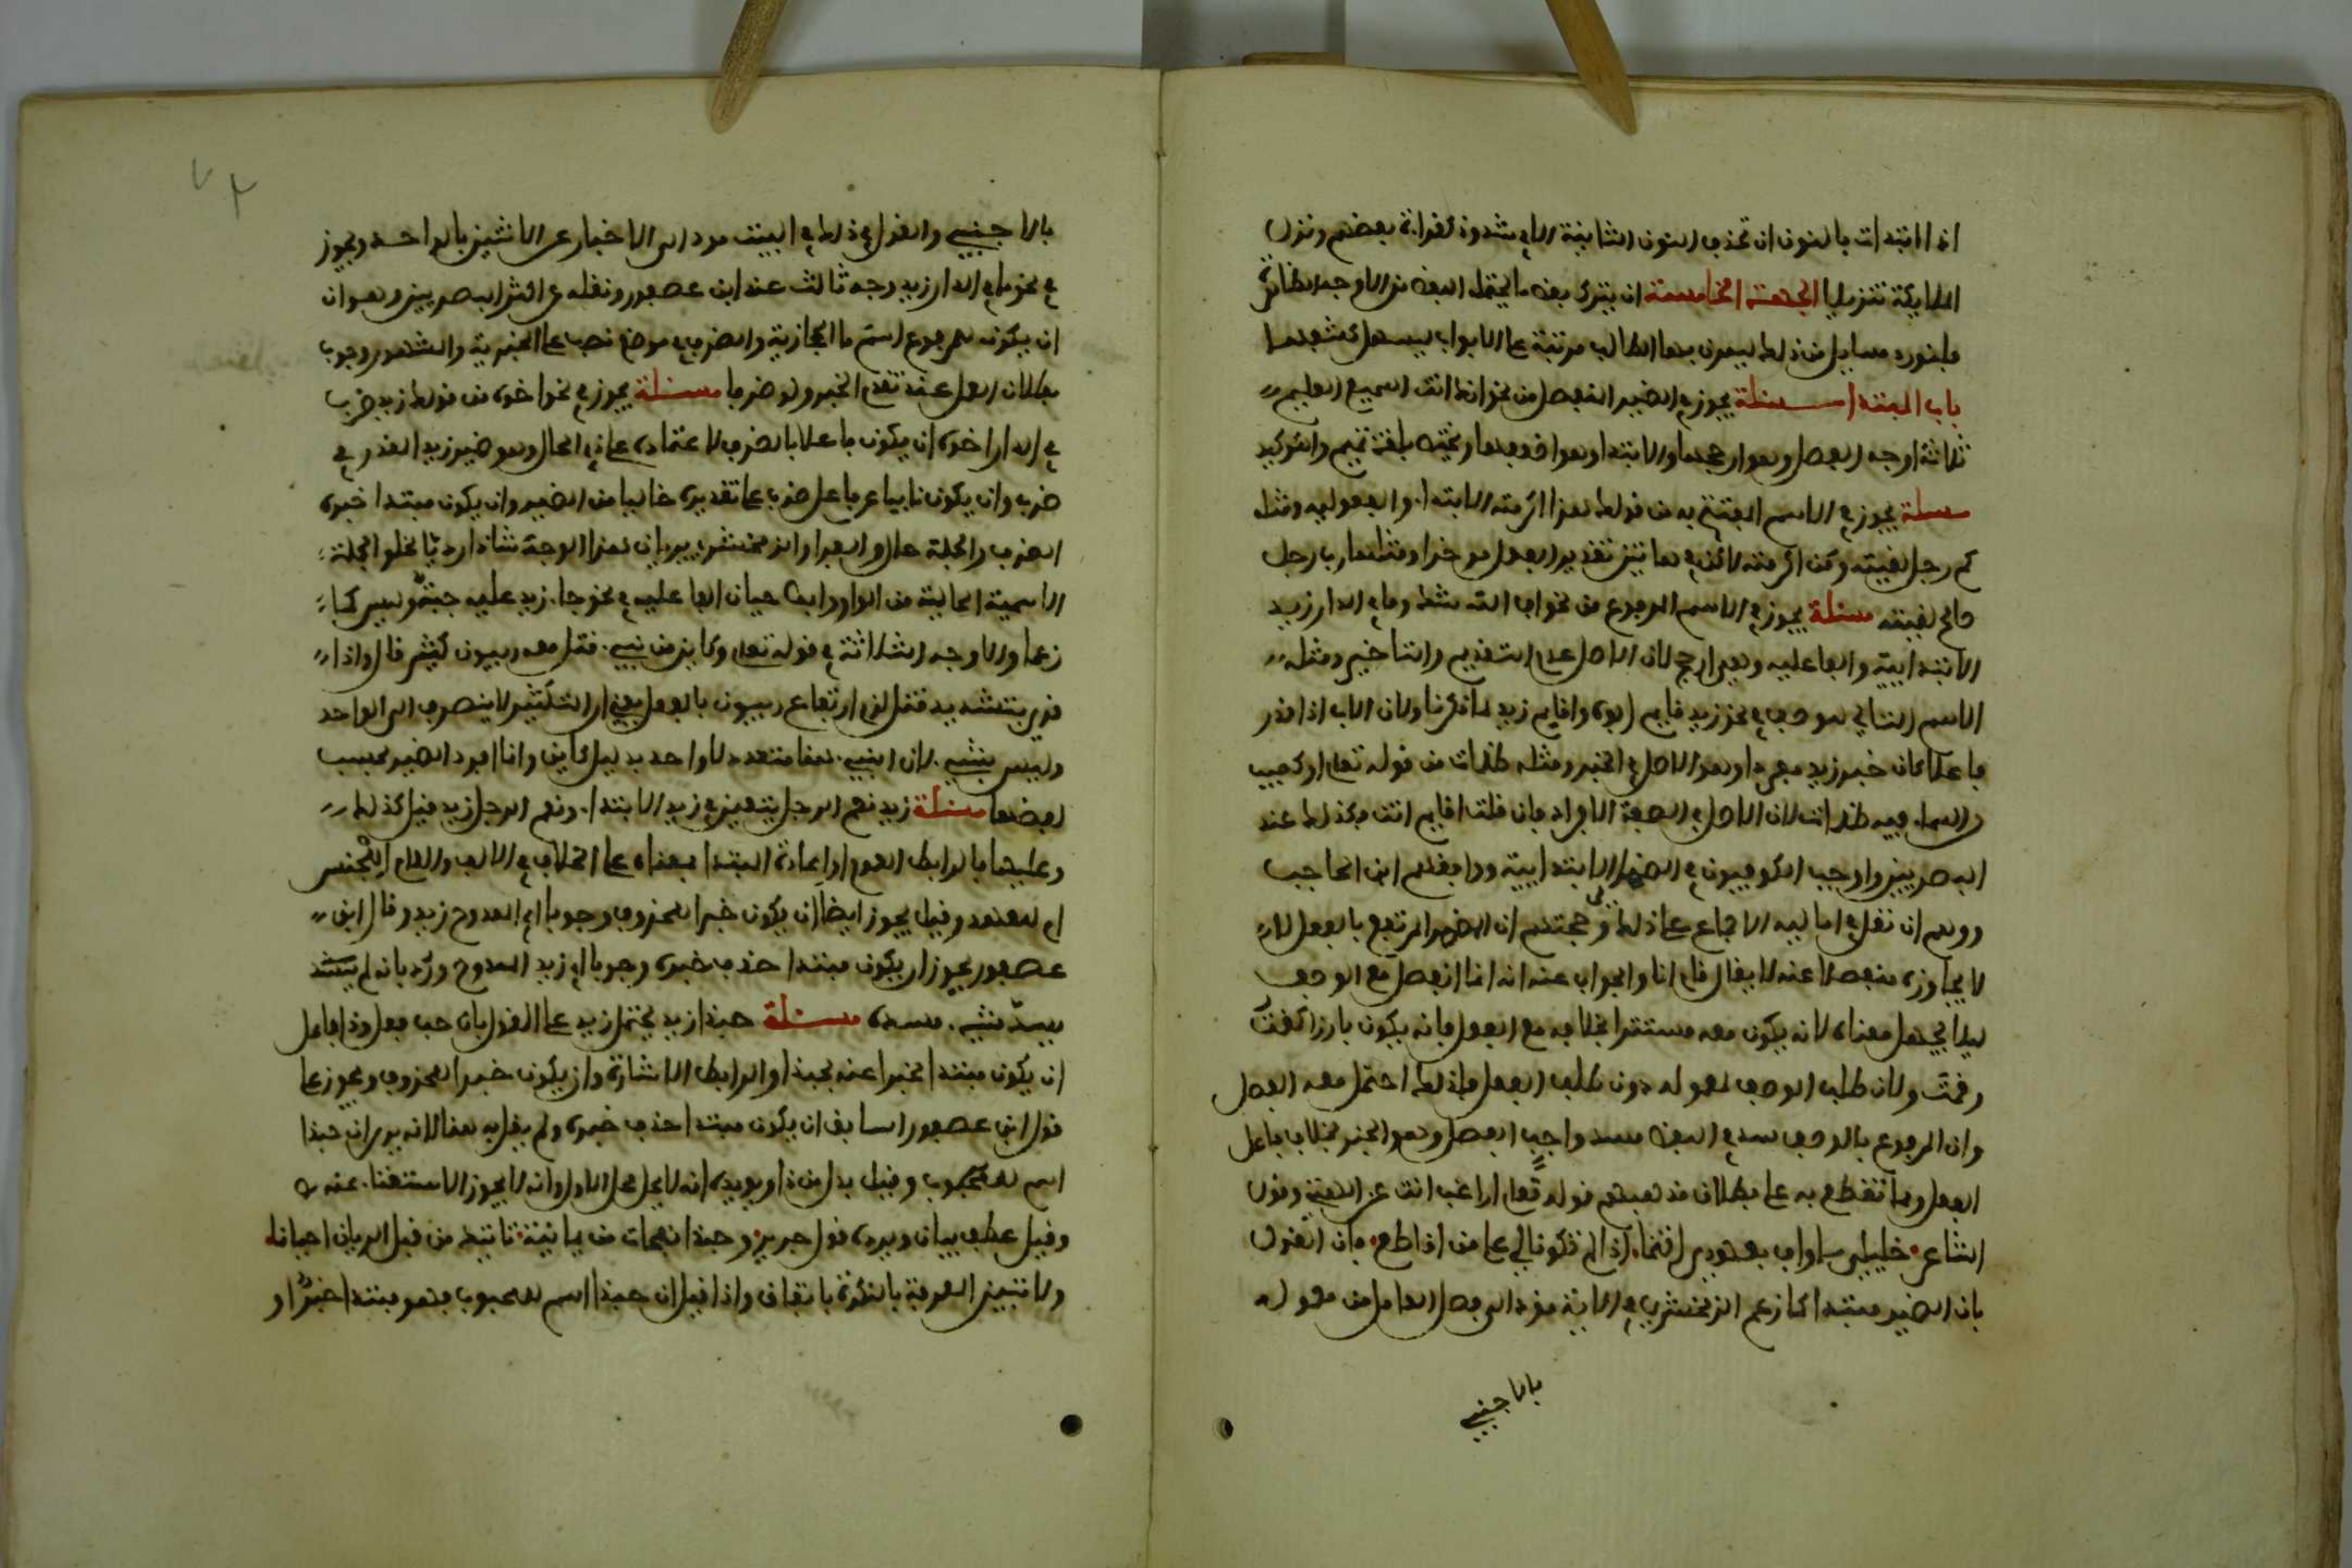 اذا ابتدات بالنون ان تحذف النون الثانية الا في شذوذ كقراءة بعضهم ونزل
الملايكة تنزيلا الجهة الخامسة ان يترك بعض ما يحتمله اللفظ من الاوجه الظاهرة
ولنورد مسايل من ذلك ليتمرن بها الطالب مرتبة على الابواب ليسهل كشفها
باب المبتدا مسئلة يجوز في الضمير المنفصل من نحو انك انت السميع العليم
ثلاثة اوجه الفصل وهو ارجحها والابتدا وهو اضعفها ويختص بلغة تميم والتوكيد
مسئلة يجوز في الاسم المفتتح به من قولك هذا اكرمته الابتدا والمفعوليه ومثله
كم رجل لقيته ومن اكرمته لاكن في هاتين تقدير الفعل موخرا ومثلهما رب رجل
صالح لقيته مسئلة يجوز في الاسم المرفوع من نحو افي الله شك وما في الدار زيد
الابتدايية والفاعليه وهي ارجح لان الاصل عدم التقديم والتاخير ومثله
الاسم التالي للوصف في نحو زيد قايم ابوه واقايم زيد لما ذكرنا ولان الاب اذا قدر
فاعلا كان خبر زيد مفردا وهو الاصل في الخبر ومثله ظلمات من قوله تعلى او كصيب
من السماء فيه ظلمات لان الاصل في الصفة الافراد فان قلت اقايم انت فكذلك عند
البصريين واوجب الكوفيون في الضمير الابتدايية ووافقهم ابن الحاجب
ووهم ان نقل في اماليه الاجماع على ذلك وحجتهم ان المضمر المرتفع بالفعل لا
لا يجاوره منفصلا عنه لا يقال قام انا والجواب عنه انه انما انفصل مع الوصف
ليلا يجهل معناه لانه يكون معه مستترا بخلافه مع الفعل فانه يكون بارزا كقمت
وقمت ولان طلب الوصف لمعموله دون طلب الفعل فلذلك احتمل معه الفصل
وان المرفوع بالوصف سد في اللفظ مسد واجب الفصل وهو الخبر بخلاف فاعل
الفعل ومما تقطع به على بطلان مذهبهم قوله تعلى اراغب انت عن الهتي وقول
الشاعر خليلي ما واف بعهدي انتما اذا لم تكونا لي على من اقاطع فان القول
بان الضمير مبتدا كما زعم الزمخشري في الاية مؤد الى فصل العامل من معموله
بالاجنبي
بالاجنبي والقول في ذلك في البيت مود الى الاخبار عن الاثنين بالواحد ويجوز
في نحو ما في الدار زيد وجه ثالث عند ابن عصفور ونقله عن اكثر البصريين وهو ان
ان يكون المرفوع اسم ما الحجازية والظرف في موضع نصب على الخبرية والمشهور وجوب
بطلان العمل عند تقدم الخبر ولو ظرفا مسئلة يجوز في نحو اخوه من قولك زيد ضرب
في الدار اخوه ان يكون فاعلا بالظرف لاعتماده على ذي الحال وهو ضمير زيد المقدر في
ضرب وان يكون نايبا عن فاعل ضرب على تقديره خاليا من الضمير وان يكون مبتدا خبره
الظرف والجملة حال والفرا والزمخشري يريان هذا الوجه شاذا رديا لخلو الجملة
الاسمية الحالية من الواو ويوجبان الفاعليه في نحو جاء زيد عليه جبة وليس كما
زعما والاوجه الثلاثة في قوله تعلى وكاين من نبيء قتل معه ربيون كثير قال واذا
قري بتشديد قتل لزم ارتفاع ربيون بالفعل يعني ان التكثير لا ينصرف الى الواحد
وليس بشيء لان النبيء هنا متعدد لا واحد بدليل كاين وانما افرد الضمير بحسب
لفظها مسئلة زيد نعم الرجل يتعين في زيد الابتدا ونعم الرجل زيد قيل كذلك
وعليهما بالرابط العموم او اعادة المبتدا بمعناه على الخلاف في الالف واللام اللجنس
ام للعهد وقيل يجوز ايضا ان يكون خبرا لمحذوف وجوبا اي الممدوح زيد وقال ابن
عصفور يجوز ان يكون مبتدا حذف خبره وجوبا اي زيد الممدوح ورد بانه لم يسد
يسد شيء مسده مسئلة حبذا زيد يحتمل زيد على القول بان حب فعل وذا فاعل
ان يكون مبتدا مخبرا عنه بحبذا والرابط الاشارة وان يكون خبرا لمحذوف ويجوز على
قول ابن عصفور السابق ان يكون مبتدا حذف خبره ولم يقل به هنا لانه يرى ان حبذا
اسم للمحبوب وقيل بدل من ذا ويويده انه لا يحل محل الاول وانه لا يجوز الاستغناء عنه
وقيل عطف بيان ويرده قول جرير وحبذا نفحات من يمانية تاتيك من قبل الريان احيانا
ولا تبين المعرفة بالنكرة باتفاق واذا قيل ان حبذا اسم للمحبوب فهو مبتدا خبر او